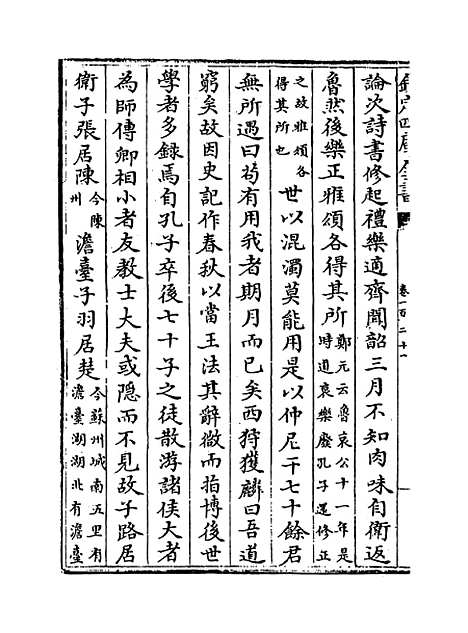 欽定四庫全書
卷一百二十一
論次詩書修起禮樂適齊聞韶三月不知肉味自衛返
魯然後樂正雅頌各得其所鄭元云魯哀公十一年是時道衰樂廢孔子還修正
之故雅頌各得其所也世以混濁莫能用是以仲尼干七十餘君
無所遇曰茍有用我者期月而已矣西狩獲麟曰吾道
窮矣故因史記作春秋以當王法其辭微而指博後世
學者多錄焉自孔子卒後七十子之徒散游諸侯大者
為師傅卿相小者友教士大夫或隱而不見故子路居
衛子張居陳今陳州澹臺子羽居楚今蘇州城南五里有澹臺湖湖北有澹臺